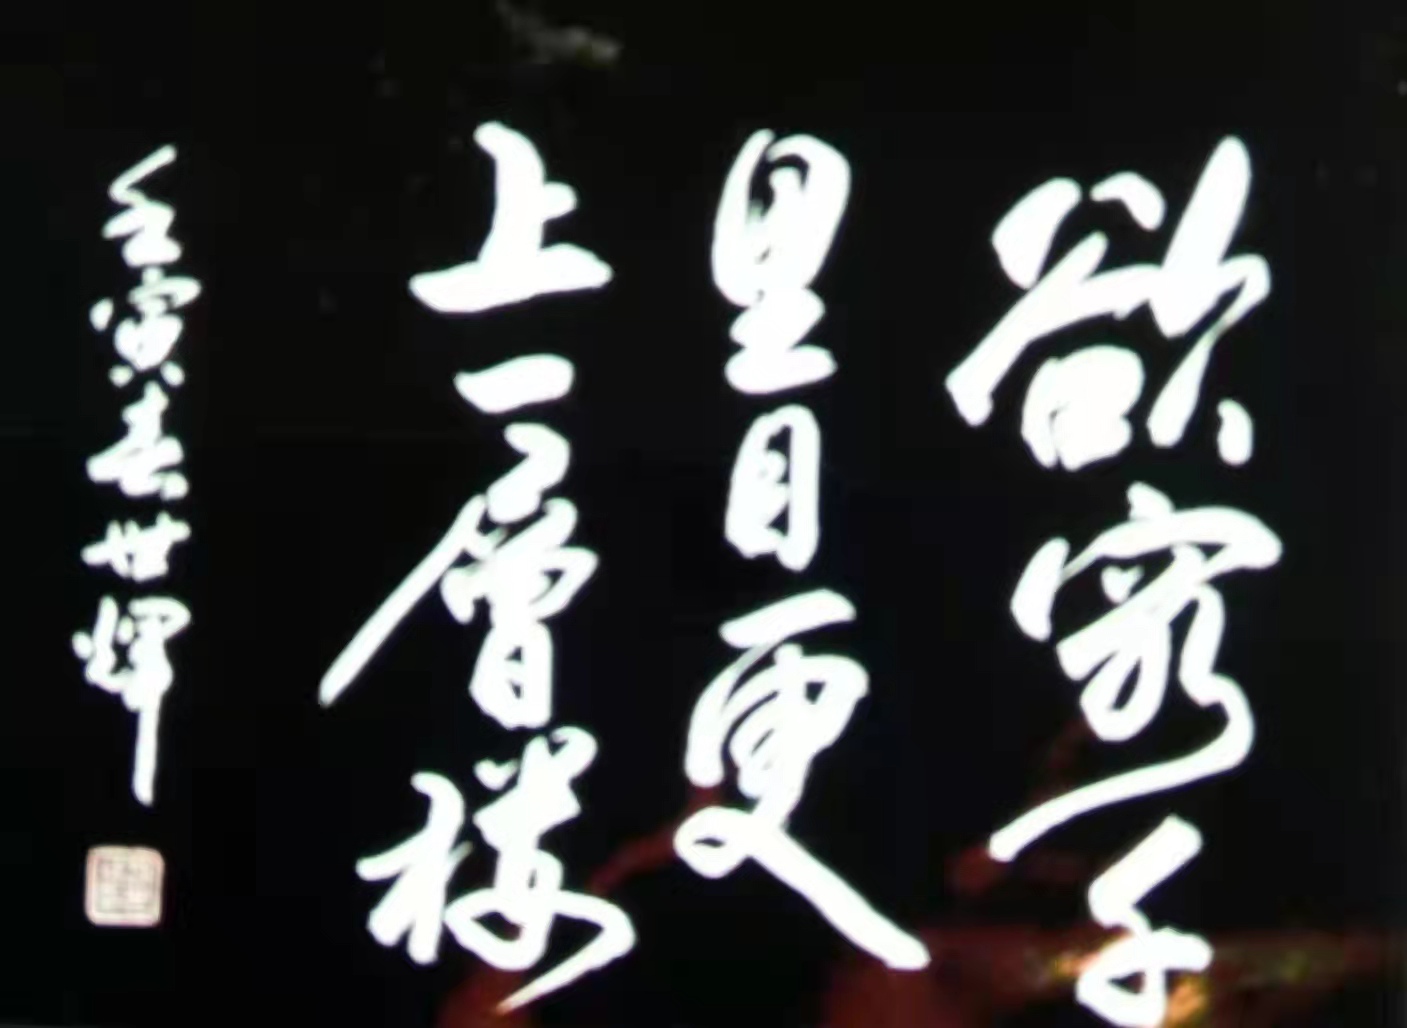 欲穷千
里目更
上一层楼
壬寅春世辉